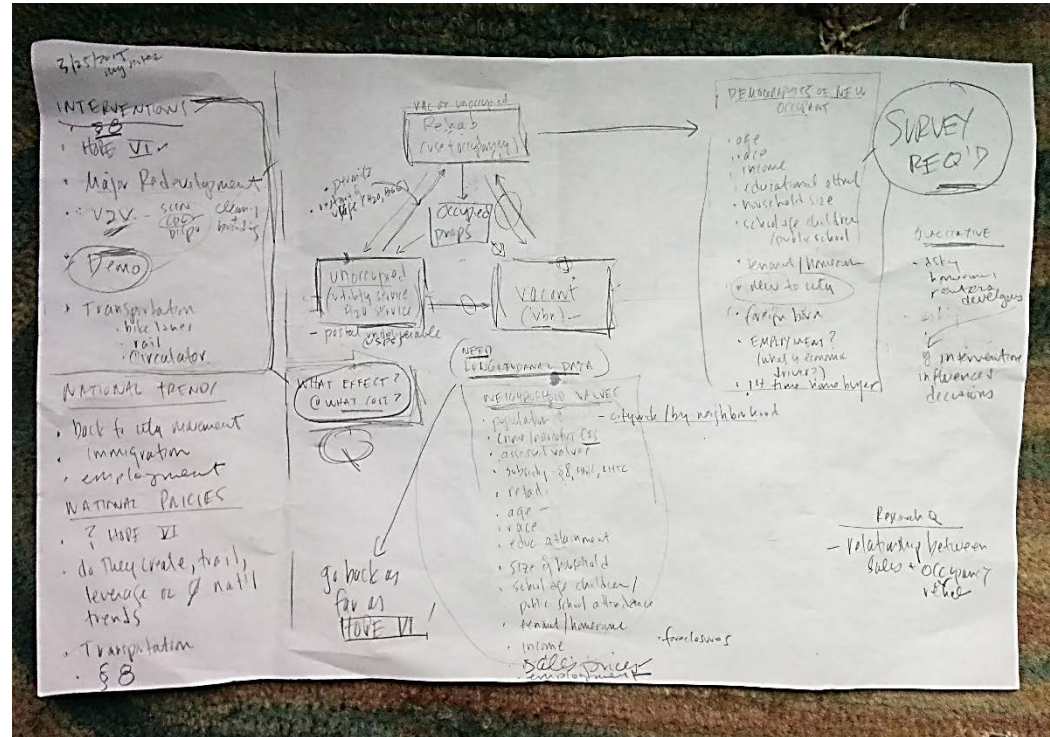 3/25/2015
my notes
INTERVENTIONS
· §8
· HOPE VI
· Major Redevelopment
· V2V - scan
clean
boarding
· Demo
· Transportation
· bike lanes
· rail
· Circulator
NATIONAL TRENDS
· back to city movement
· immigration
· employment
NATIONAL POLICIES
· ? HOPE VI
· do they create, trail,
leverage or Ø nat'l
trends
· Transportation
· §8
VAC or unoccupied
Rehab
(use + occupancy)
· permits
Occupied
props
unoccupied
utility service
H20 service
- postal undeliverable
USPS
Vacant
(vbn)
WHAT EFFECT?
@ WHAT COST?
Q
NEED
LONGITUDINAL DATA
NEIGHBORHOOD VALUES
- citywide/by neighborhood
· population
· crime
· assessed values
· subsidy - §8,
· retail
· age
· race
· educ attainment
· size of household
· school age children/
public school attendance
· tenant/homeowner
· income
· sales prices
· employment
· foreclosures
go back as
far as
HOPE VI
DEMOGRAPHICS OF NEW
OCCUPANT
· age
· race
· income
· educational
· household size
· school age children
/public school
· tenant/homeowner
· new to city
· foreign born
· EMPLOYMENT?
driver?)
· 1st time home buyer
SURVEY
REQ'D
QUALITATIVE
· asking
homeowners
renters
developers
intervention
influenced
decisions
Research Q
- relationship between
sales + occupancy